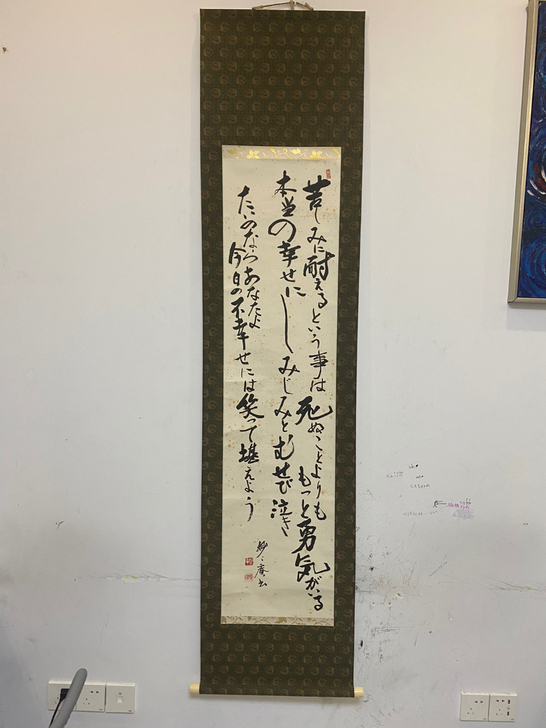 苦しみに耐えるという事は死ぬことよりももっと勇気がいる
本当の幸せにしみじみとむせび泣き
たいのならあなたよ
今日の不幸せには笑って堪えよう